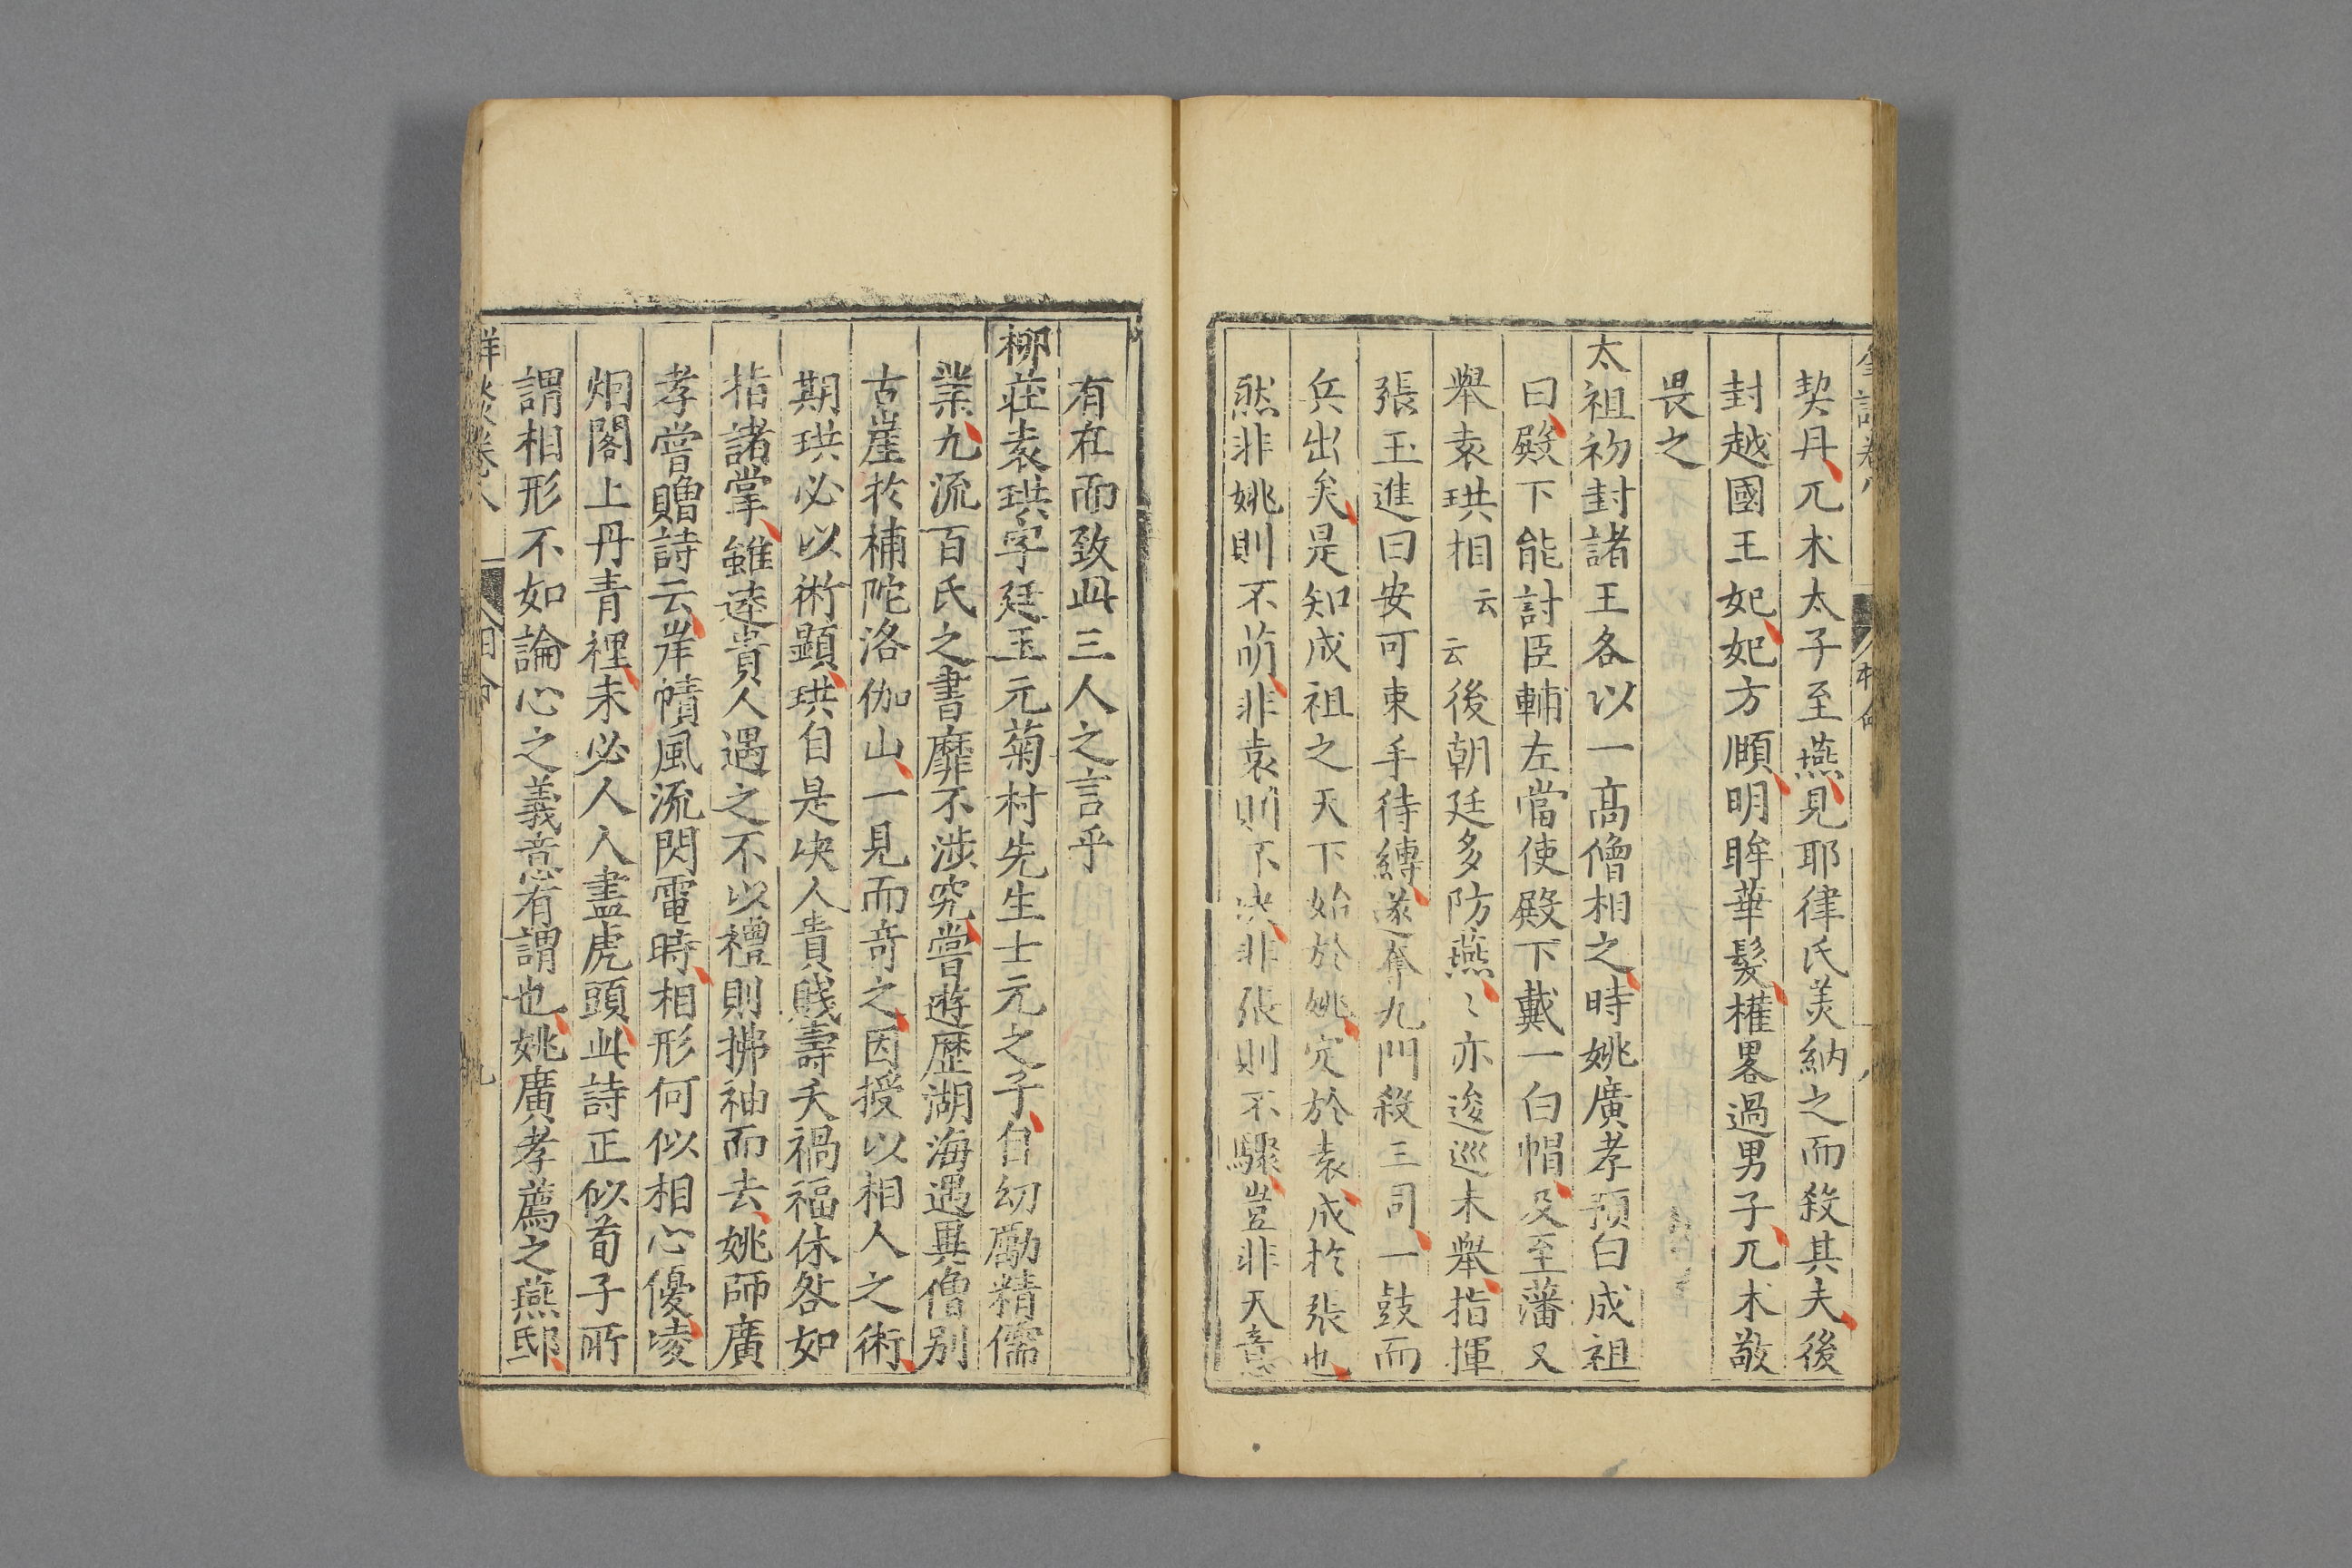 契丹兀术太子至燕見耶律氏美納之而殺其夫後
封越國王妃妃方頤明眸華髮權畧過男子兀术敬
畏之
太祖初封諸王各以一高僧相之時姚廣孝預白成祖
曰殿下能討臣輔左當使殿下戴一白帽及至藩又
舉袁珙相云云後朝廷多防燕〻亦逡巡未舉指揮
張玉進曰安可束手待縛遂奪九門殺三司一鼓而
兵出矣是知成祖之天下始於姚定於袁成於張也
然非姚則不萌非袁則不决非張則不驟豈非天意
有在而致此三人之言乎
柳莊袁珙字廷玉元菊村先生士元之子自幼勵精儒
業九流百氏之書靡不涉究嘗遊歷湖海遇異僧别
古崖於補陀洛伽山一見而奇之因授以相人之術
期珙必以術顕珙自是决人貴賤壽夭禍福休咎如
指諸掌雖逵貴人遇之不以禮則拂袖而去姚師廣
孝嘗贈詩云岸幘風流閃電時相形何似相心優凌
烟閣上丹青裡未必人人盡虎頭此詩正似荀子所
謂相形不如論心之義意有謂也姚廣孝薦之燕邸